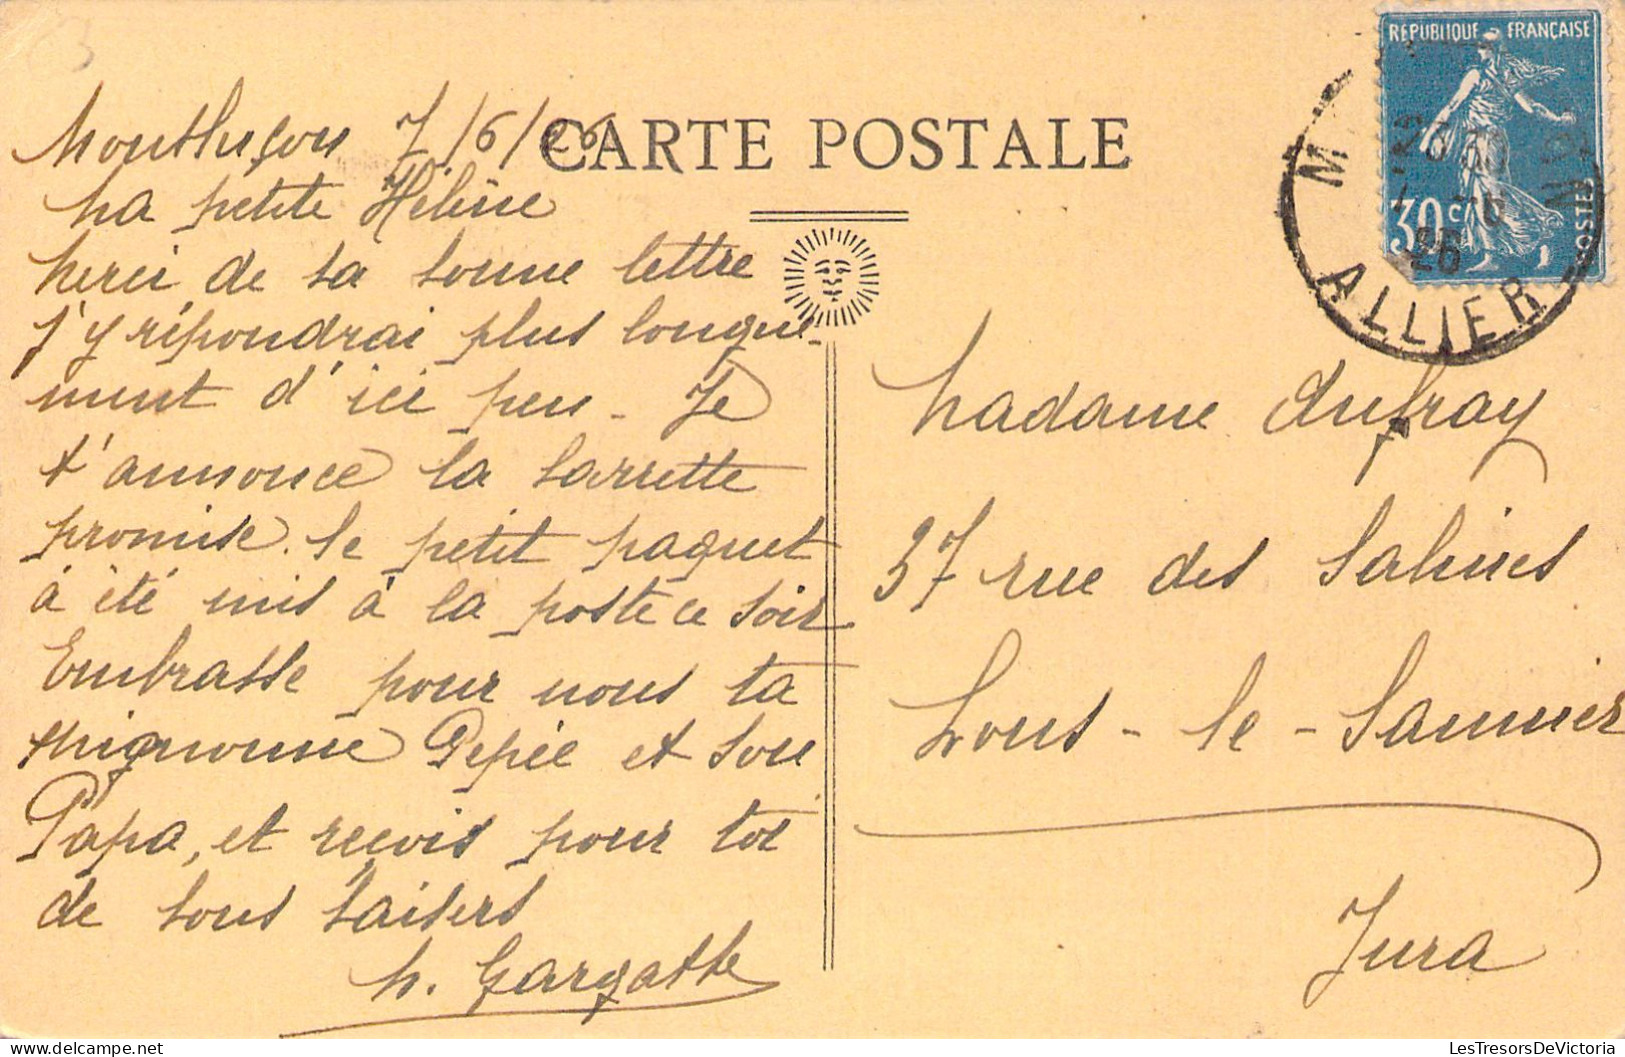 CARTE POSTALE
RÉPUBLIQUE FRANÇAISE
30c
POSTES
ALLIER
26
Montluçon 7/6/26
Ma petite Hélène
Merci de ta bonne lettre
j'y répondrai plus longue-
ment d'ici peu - Je
t'annonce la barrette
promise. le petit paquet
à été mis à la poste ce soir
Embrasse pour nous ta
mignonne Pepée et son
Papa, et reçois pour toi
de bons baisers
M. Gargasse
Madame Dufray
37 rue des Salines
Lons-le-Saunier
Jura
LesTresorsDeVictoria